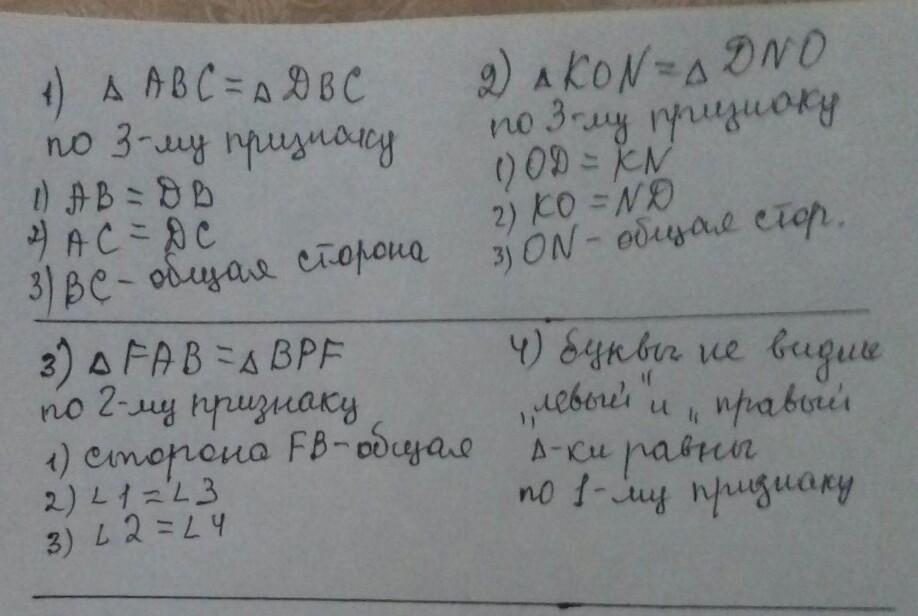 1) Δ ABC = Δ DBC
по 3-му признаку
1) AB = DB
2) AC = DC
3) BC - общая сторона
2) Δ KON = Δ DNO
по 3-му признаку
1) OD = KN
2) KO = ND
3) ON - общая стор.
3) Δ FAB = Δ BPF
по 2-му признаку
1) сторона FB - общая
2) ∠1 = ∠3
3) ∠2 = ∠4
4) буквы не видны
„левый" и „правый
Δ-ки равны
по 1-му признаку